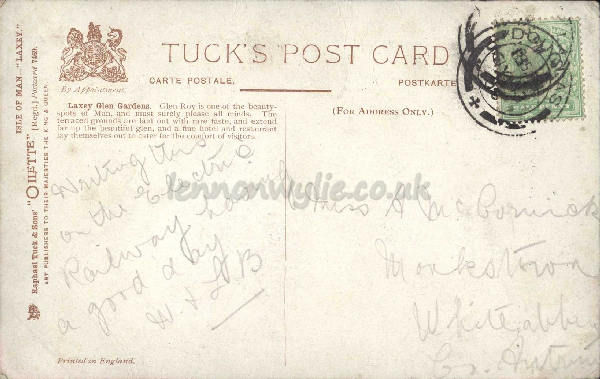 ISLE OF MAN. "LAXEY."
Raphael Tuck & Sons' "OILETTE" [Regd.] Postcard 7569.
ART PUBLISHERS TO THEIR MAJESTIES THE KING & QUEEN.
By Appointment.
TUCK'S POST CARD
CARTE POSTALE.
POSTKARTE
(FOR ADDRESS ONLY.)
Laxey Glen Gardens. Glen Roy is one of the beauty-
spots of Man, and must surely please all minds. The
terraced grounds are laid out with rare taste, and extend
far up the beautiful glen, and a fine hotel and restaurant
lay themselves out to cater for the comfort of visitors.
Writing this
on the Electric
Railway having
a good day
lennonwylie.co.uk
Miss A McCormick
Monkstown
Whiteabbey
Co. Antrim
Printed in England.